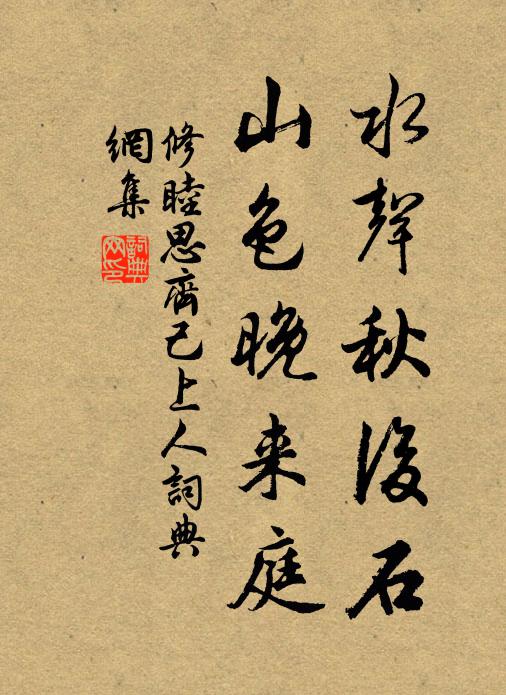 水聲秋後石
山色晚来庭
修睦思齊己上人詞典
網集
詞典
网印